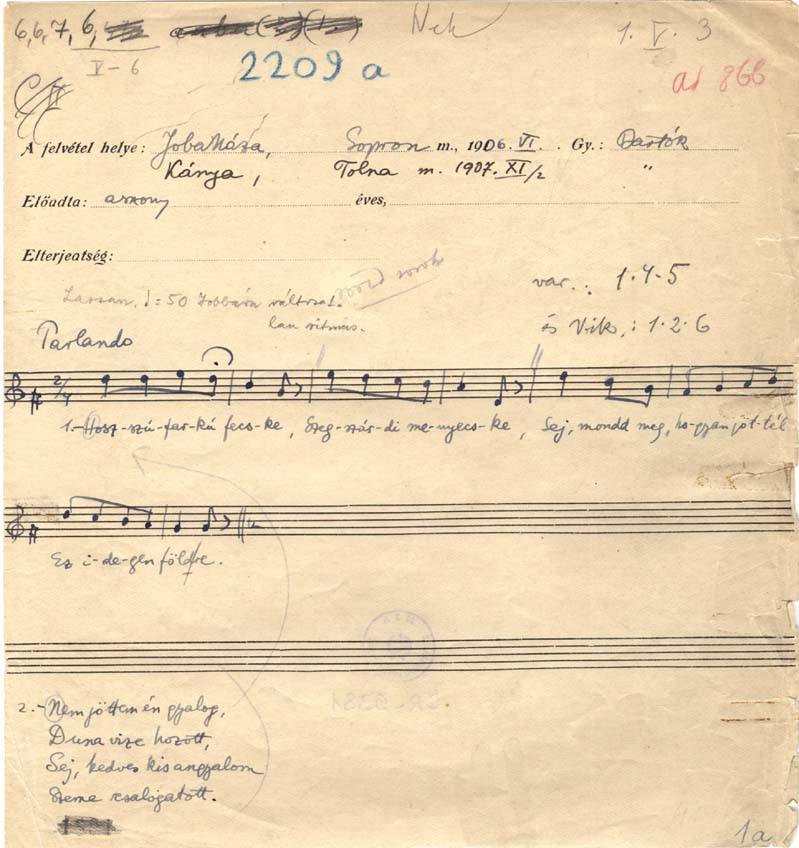 6,6,7,6,
V-6
2209 a
1. V. 3
ad 866
A felvétel helye: Jobaháza, Sopron m., 1906. VI. Gy.: Bartók
Kánya, Tolna m. 1907. XI/2 "
Előadta: asszony éves,
Elterjeatség:
var.: 1·4-5
Lassan. ♩=50
és Vik.: 1·2·6
Parlando
2/4
1.- Hosz-szú-far-kú fecs-ke, Szeg-szár-di me-nyecs-ke, Sej, mondd meg, ho-gyan jöt-tél
Ez i-de-gen föld-re.
2.- Nem jöttem én gyalog,
Duna vize hozott,
Sej, kedves kis angyalom
Szeme csalogatott.
1a